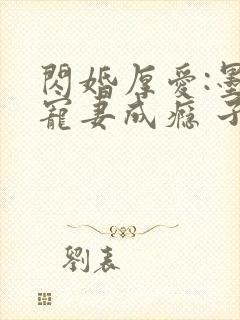 閃婚厚愛:墨
寵妻成癮 子
劉表